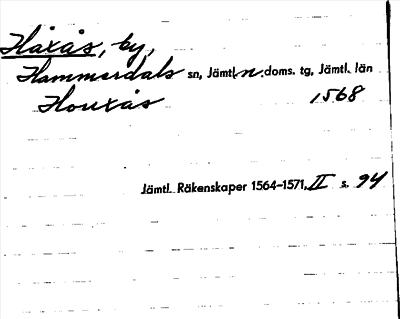 Håxås, by,
Hammerdals sn, Jämtl. n. doms. tg, Jämtl. län
Houxås 1568
Jämtl. Räkenskaper 1564-1571, II s. 94